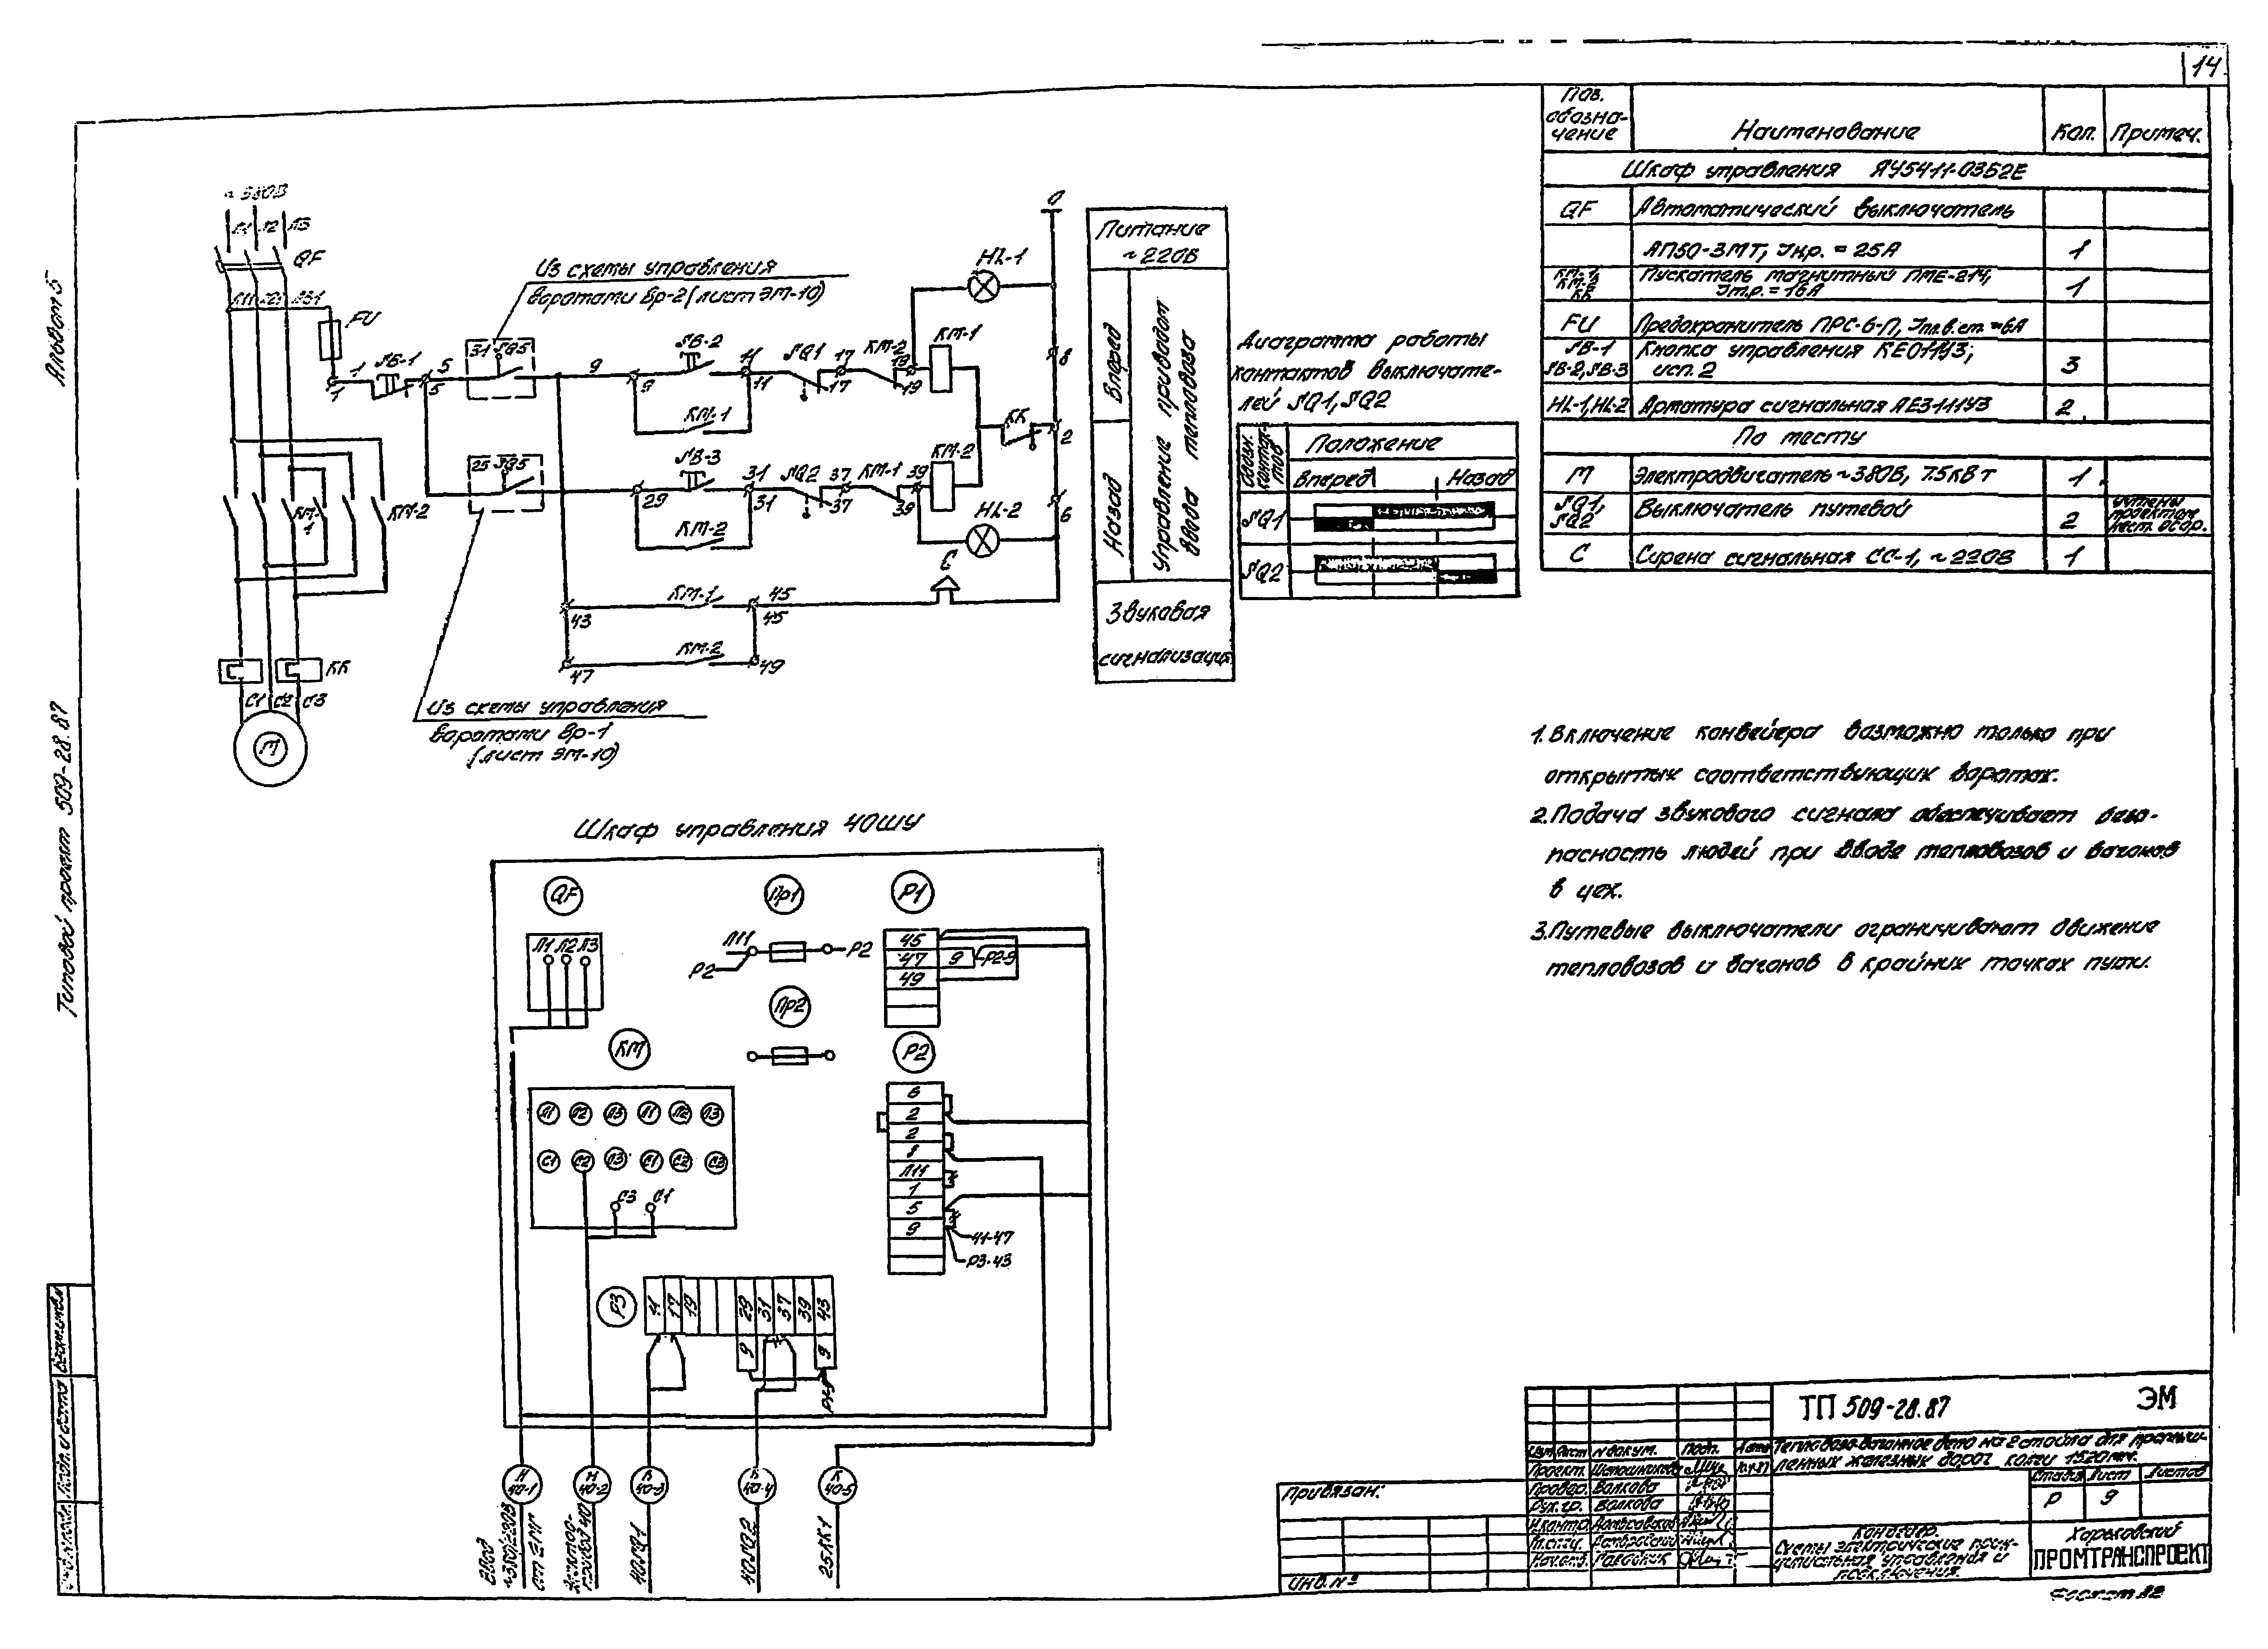 14
Альбом 5
Типовой проект 509-28.87
~380В
Л1 Л2 Л3
QF
Л11 Л21 Л31
FU
1
1
SB-1
5
5
Из схемы управления
воротами Вр-2 (лист ЭМ-10)
31 SQ5
9
9
SB-2
11
11
SQ1
17
17
КМ-2
19
19
КМ-1
HL-1
0
8
КМ-1
КК
2
25 SQ5
29
SB-3
31
31
SQ2
37
37
КМ-1
39
39
КМ-2
HL-2
6
КМ-2
С
КМ-1
КМ-2
43
КМ-1
45
45
47
КМ-2
49
КК
С1 С2 С3
М
Из схемы управления
воротами Вр-1
(лист ЭМ-10)
Питание
~220В
Вперед
Назад
Управление приводом
ввода тепловоза
Звуковая
сигнализация
Диаграмма работы
контактов выключате-
лей SQ1, SQ2
Обозн.
контак-
тов
Положение
Вперед
Назад
SQ1
SQ2
Поз.
обозна-
чение
Наименование
Кол.
Примеч.
Шкаф управления ЯУ5411-03Б2Е
QF Автоматический выключатель
АП50-3МТ, Iн.р. = 25А 1
КМ-1, КМ-2 КК Пускатель магнитный ПМЕ-214,
Iт.р. = 16А 1
FU Предохранитель ПРС-6-П, Iпл.в.ст. = 6А
SB-1 Кнопка управления КЕ011У3,
SB-2, SB-3 исп. 2 3
HL-1, HL-2 Арматура сигнальная АЕ3111У3 2
По месту
М Электродвигатель ~380В, 7.5кВт 1
SQ1, SQ2 Выключатель путевой 2 учтены
С Сирена сигнальная СС-1, ~220В 1
1. Включение конвейера возможно только при
открытых соответствующих воротах.
2. Подача звукового сигнала обеспечивает безо-
пасность людей при вводе тепловозов и вагонов
в цех.
3. Путевые выключатели ограничивают движение
тепловозов и вагонов в крайних точках пути.
Шкаф управления 40ШУ
QF
Пр1
Р1
Л1 Л2 Л3
Л11
Р2
Р2
45
47
49
9
Р2-9
Пр2
КМ
Р2
6
2
2
8
Л11
1
5
9
41-47
Р3-43
Л1 Л2 Л3 Л1 Л2 Л3
С1 С2 Л3 С1 С2 С3
С3 С1
Р3
11 17 19 29 31 37 39 43
9
9
Н 40-1
Н 40-2
К 40-3
К 40-4
К 40-5
Ввод
~380/220В
40SQ1
40SQ2
25КК1
ТП 509-28.87 ЭМ
Тепловозо-вагонное депо на 2 стойла для промыш-
ленных железных дорог колеи 1520 мм.
Изм. Лист № докум. Подп. Дата
Проект.
Провер. Волкова
Рук. гр. Волкова
Н.контр.
Стадия Лист Листов
Р 9
Схемы электрические прин-
ципиальная управления и
подключения.
Харьковский
ПРОМТРАНСПРОЕКТ
Привязан:
Инв. №
Формат А2